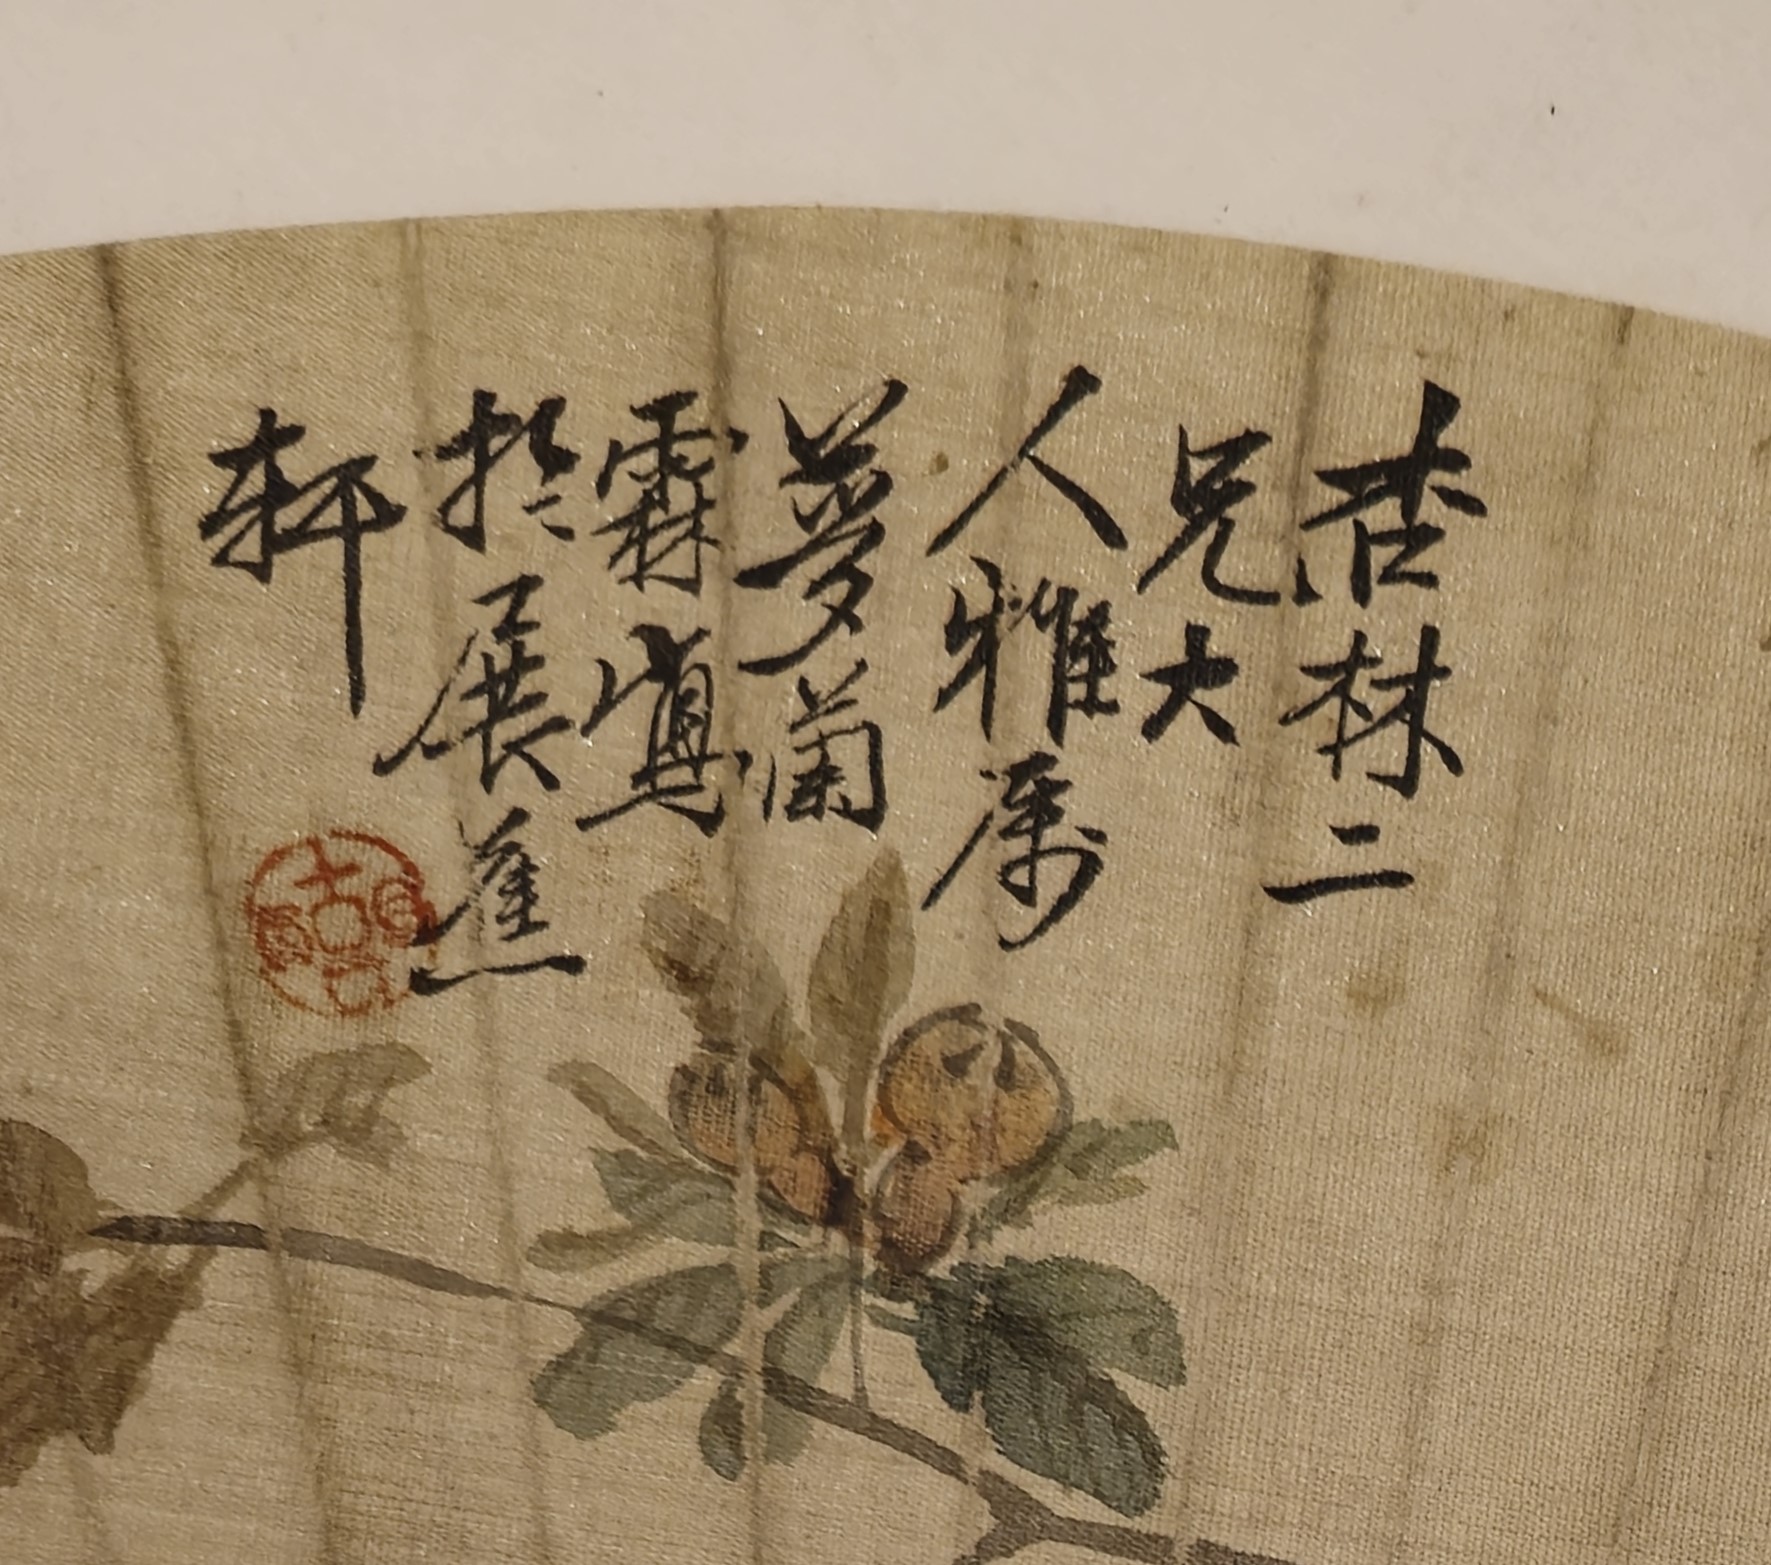 杏林二
兄大
人雅属
夢蘭
霖寫
於展蕉
軒